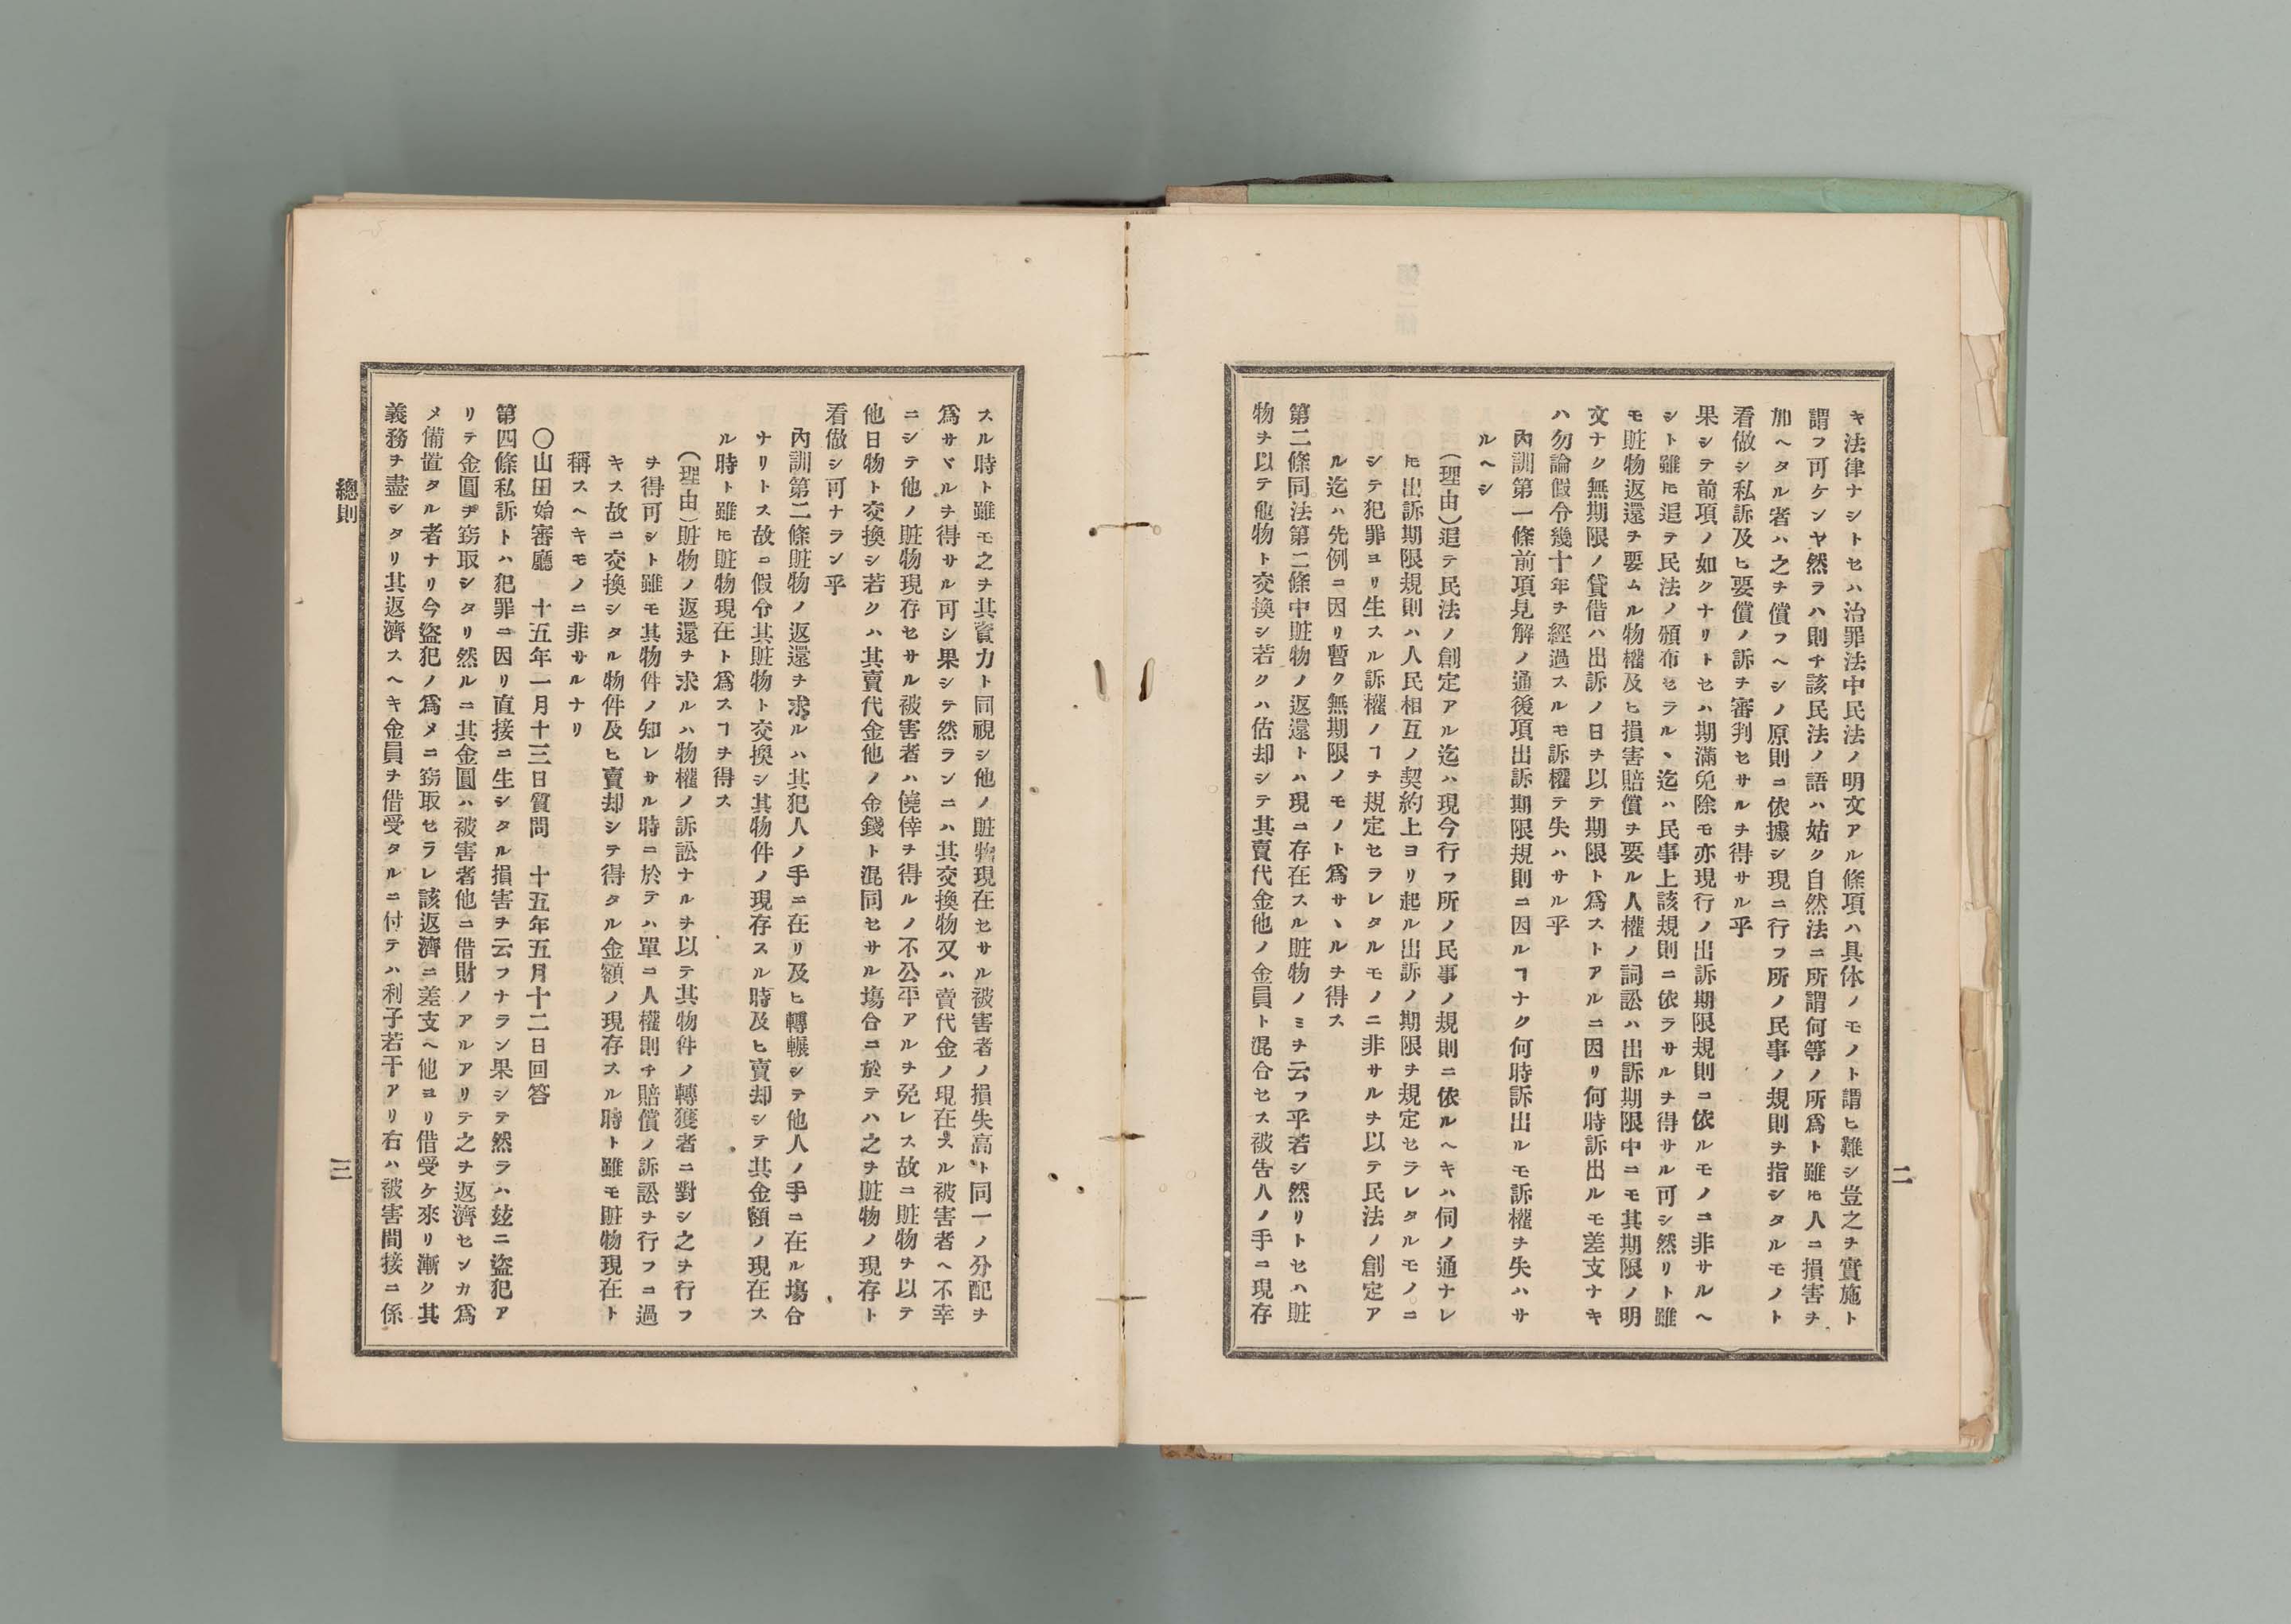 二
キ法律ナシトセハ治罪法中民法ノ明文アル條項ハ具体ノモノト謂ヒ難シ豈之ヲ實施ト
謂フ可ケンヤ然ラハ則チ該民法ノ語ハ姑ク自然法ニ所謂何等ノ所爲ト雖𪜈人ニ損害ヲ
加ヘタル者ハ之ヲ償フヘシノ原則ニ依據シ現ニ行フ所ノ民事ノ規則ヲ指シタルモノト
看做シ私訴及ヒ要償ノ訴ヲ審判セサルヲ得サル乎
果シテ前項ノ如クナリトセハ期滿免除モ亦現行ノ出訴期限規則ニ依ルモノニ非サルヘ
シト雖𪜈追テ民法ノ頒布セラルヽ迄ハ民事上該規則ニ依ラサルヲ得サル可シ然リト雖
モ賍物返還ヲ要ムル物權及ヒ損害賠償ヲ要ル人權ノ詞訟ハ出訴期限中ニモ其期限ノ明
文ナク無期限ノ貸借ハ出訴ノ日ヲ以テ期限ト爲ストアルニ因リ何時訴出ルモ差支ナキ
ハ勿論假令幾十年ヲ經過スルモ訴權テ失ハサル乎
內訓第一條前項見解ノ通後項出訴期限規則ニ因ルヿナク何時訴出ルモ訴權ヲ失ハサ
ルヘシ
(理由)追テ民法ノ創定アル迄ハ現今行フ所ノ民事ノ規則ニ依ルヘキハ伺ノ通ナレ
𪜈出訴期限規則ハ人民相互ノ契約上ヨリ起ル出訴ノ期限ヲ規定セラレタルモノニ
シテ犯罪ヨリ生スル訴權ノヿヲ規定セラレタルモノニ非サルヲ以テ民法ノ創定ア
ル迄ハ先例ニ因リ暫ク無期限ノモノト爲サヽルヲ得ス
第二條同法第二條中賍物ノ返還トハ現ニ存在スル賍物ノミヲ云フ乎若シ然リトセハ賍
物ヲ以テ他物ト交換シ若クハ估却シテ其賣代金他ノ金員ト混合セス被告人ノ手ニ現存
スル時ト雖モ之ヲ其資力ト同視シ他ノ賍物現在セサル被害者ノ損失高ト同一ノ分配ヲ
爲サヾルヲ得サル可シ果シテ然ランニハ其交換物又ハ賣代金ノ現在スル被害者ヘ不幸
ニシテ他ノ賍物現存セサル被害者ハ僥倖ヲ得ルノ不公平アルヲ免レス故ニ賍物ヲ以テ
他日物ト交換シ若クハ其賣代金他ノ金錢ト混同セサル塲合ニ於テハ之ヲ賍物ノ現存ト
看做シ可ナラン乎
內訓第二條賍物ノ返還ヲ求ルハ其犯人ノ手ニ在リ及ヒ轉輾シテ他人ノ手ニ在ル塲合
ナリトス故ニ假令其賍物ト交換シ其物件ノ現存スル時及ヒ賣却シテ其金額ノ現在ス
ル時ト雖𪜈賍物現在ト爲スヿヲ得ス
(理由)賍物ノ返還ヲ求ルハ物權ノ訴訟ナルヲ以テ其物件ノ轉獲者ニ對シ之ヲ行フ
ヲ得可シト雖モ其物件ノ知レサル時ニ於テハ單ニ人權則チ賠償ノ訴訟ヲ行フニ過
キス故ニ交換シタル物件及ヒ賣却シテ得タル金額ノ現存スル時ト雖モ賍物現在ト
稱スヘキモノニ非サルナリ
〇山田始審廳 十五年一月十三日質問 十五年五月十二日回答
第四條私訴トハ犯罪ニ因リ直接ニ生シタル損害ヲ云フナラン果シテ然ラハ玆ニ盜犯ア
リテ金圓ヲ竊取シタリ然ルニ其金圓ハ被害者他ニ借財ノアルアリテ之ヲ返濟センカ爲
メ備置タル者ナリ今盜犯ノ爲メニ竊取セラレ該返濟ニ差支ヘ他ヨリ借受ケ來リ漸ク其
義務ヲ盡シタリ其返濟スヘキ金員ヲ借受タルニ付テハ利子若干アリ右ハ被害間接ニ係
總則
三